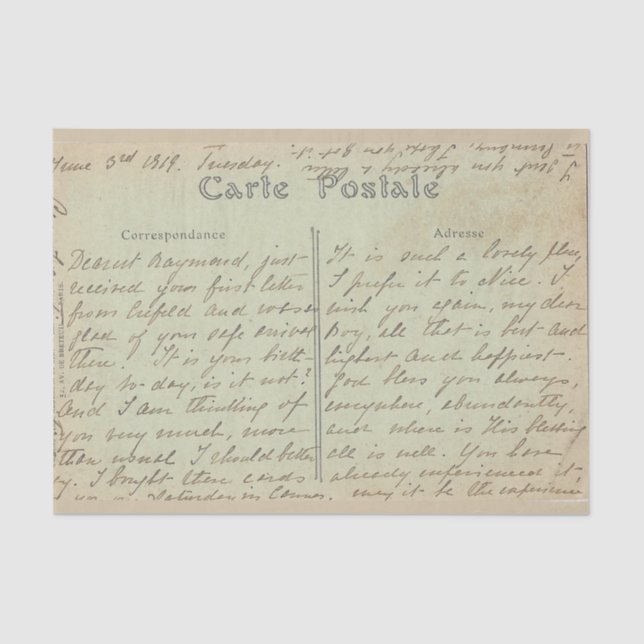 June 3rd 1919. Tuesday.
I sent you already a letter
on Sunday, I hope you got it.
Carte Postale
Correspondance
Dearest Raymond, just
received your first letter
from Crefeld and was so
glad of your safe arrival
there. It is your birth-
day to-day, is it not?
And I am thinking of
you very much, more
than usual I should better
say. I bought these cards
Saturday in Cannes.
Adresse
It is such a lovely place,
I prefer it to Nice. I
wish you again, my dear
Boy, all that is best and
highest and happiest.
God bless you always,
everywhere, abundantly,
and where is His blessing
all is well. You have
already experienced it,
may it be the experience
AV. DE BRETEUIL PARIS.